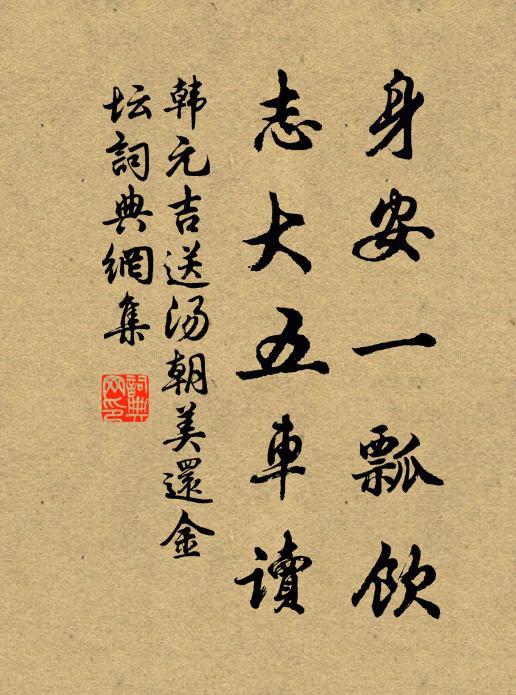 身安一瓢飲
志大五車讀
韩元吉送汤朝美還金
坛詞典網集
詞典網印